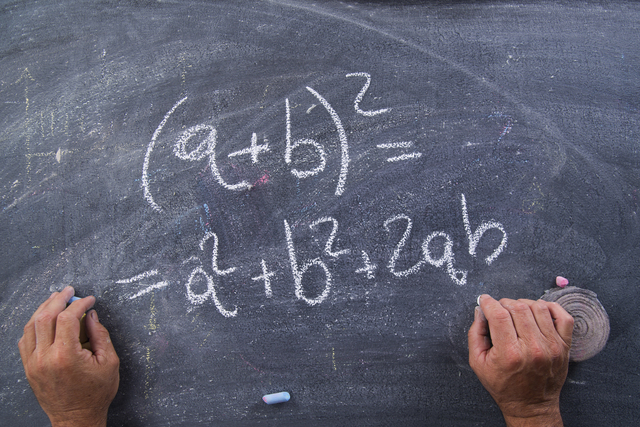 (a+b)² =
= a² + b² + 2ab